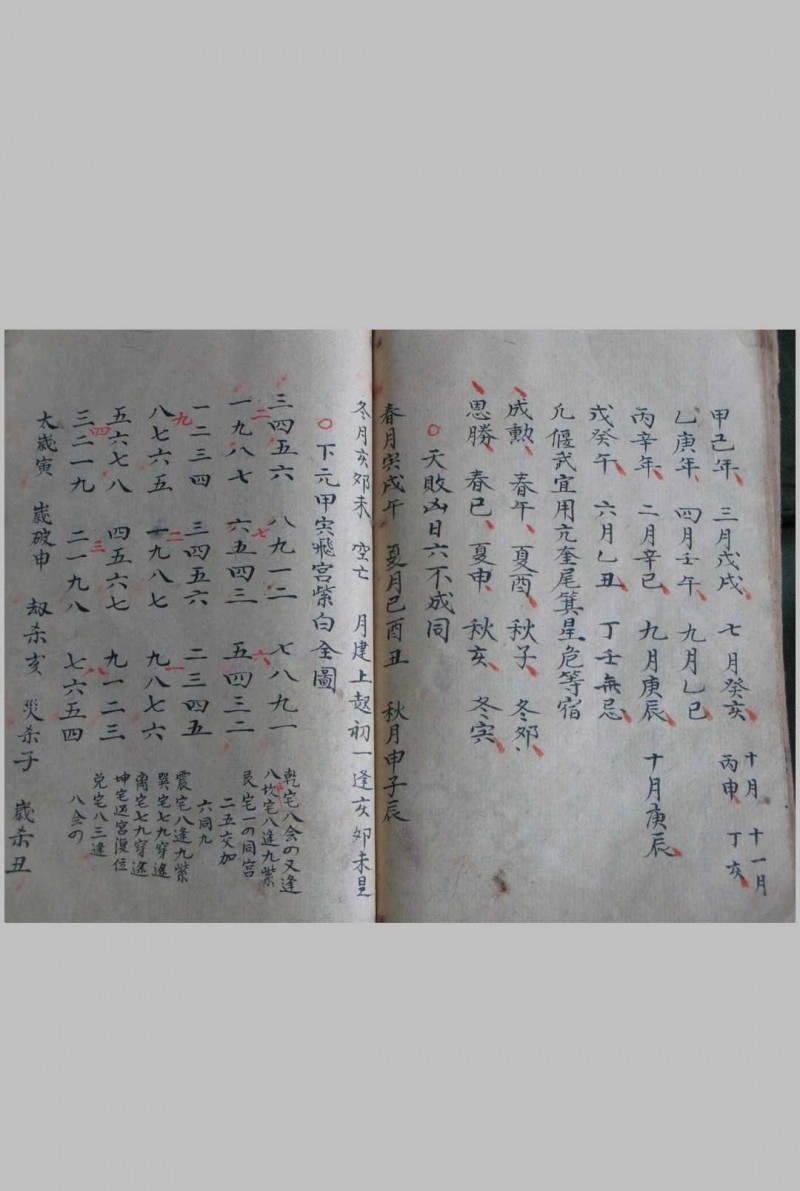 甲己年、三月戊戌、七月癸亥、十月丙申、十一月丁亥、
乙庚年、四月壬午、九月乙巳、
丙辛年、二月辛巳、九月庚辰、十月庚辰、
戊癸年、六月乙丑、丁壬無忌
凡偃武宜用亢奎尾箕星危等宿
成勲、春午、夏酉、秋子、冬卯、
思勝、春巳、夏申、秋亥、冬寅、
○天敗凶日六不成同
春月寅戌午 夏月巳酉丑 秋月申子辰
冬月亥卯未 空亡 月建上起初一逢亥卯未是
○下元甲寅飛宮紫白全圖
三四五六 八九一二 七八九一
二 七 六
一九八七 六五四三 五四三二
一二三四 三四五六 二三四五
九 二 一
八七六五 一九八七 九八七六
五六七八 四五六七 九一二三
四 三 八
三二一九 二一九八 七六五四
乾宅八会の又逢
八坎宅八逢九紫
艮宅一の同宮
二五交加
六同九
震宅八逢九紫
巽宅七九穿途
离宅七九穿途
坤宅返宮復位
兌宅八三逢
八会の
太歲寅 歲破申 劫杀亥 災杀子 歲杀丑